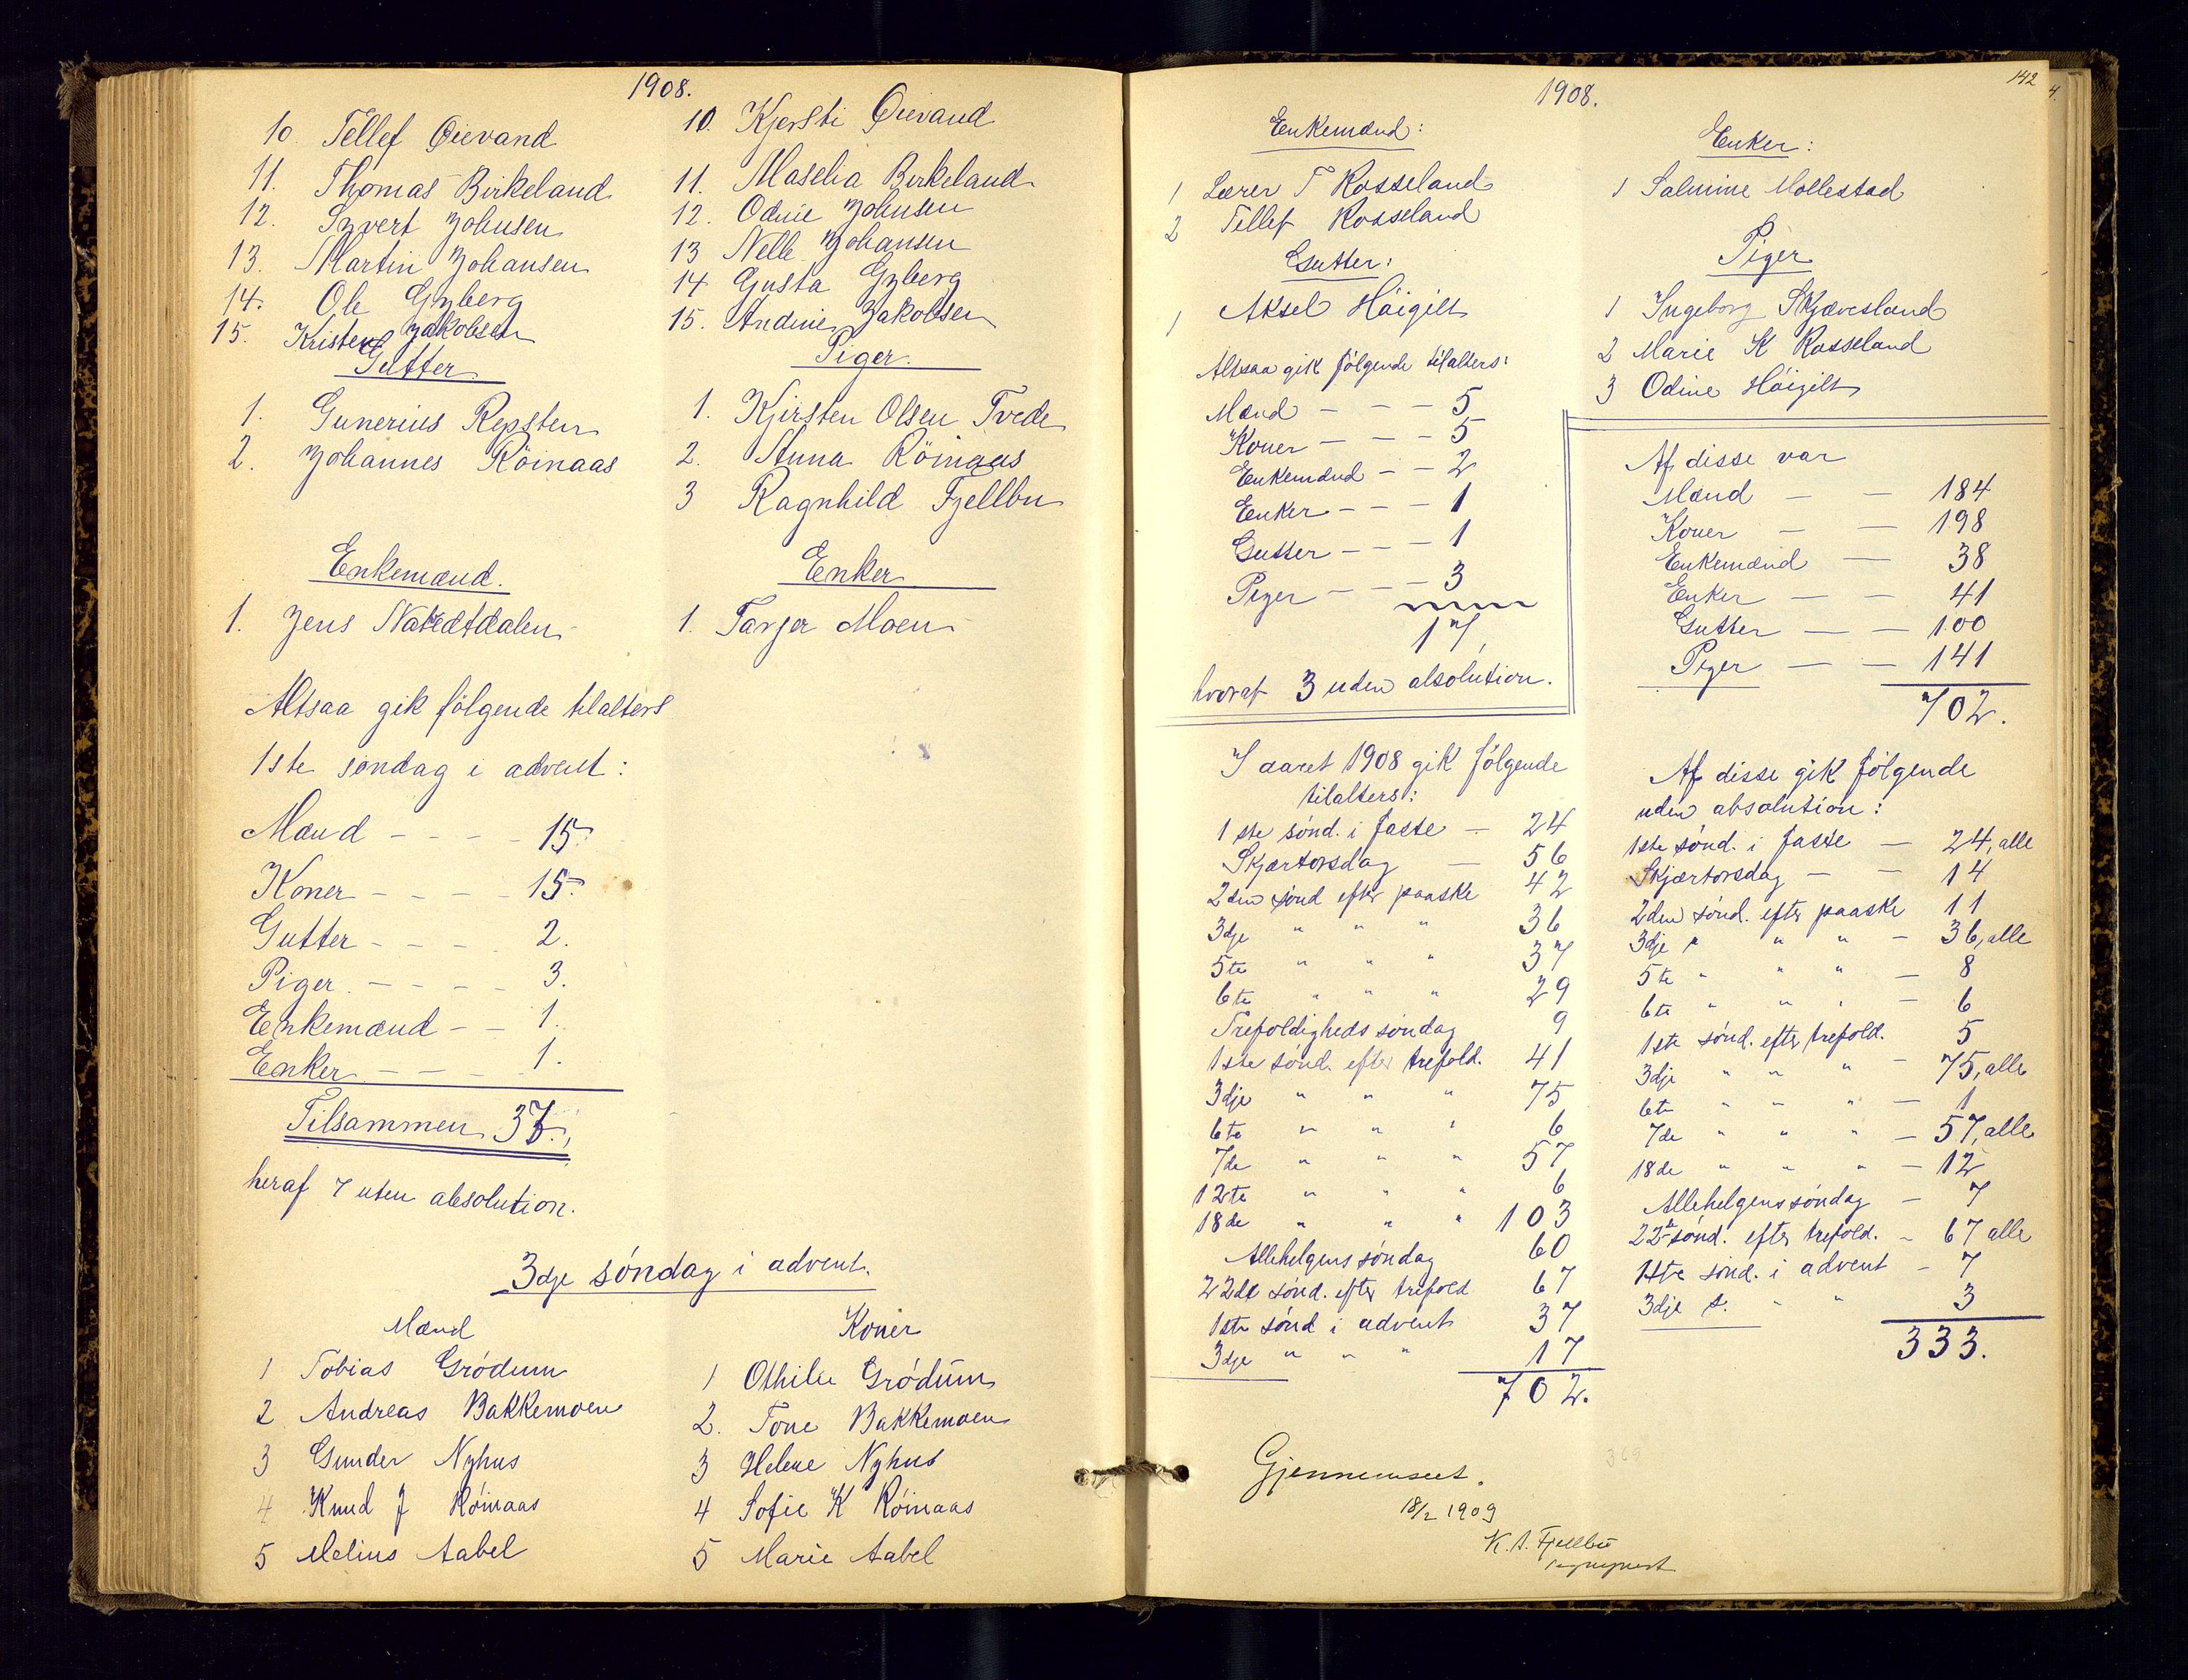 1908.
10 Tellef Øievand
11. Thomas Birkeland
12. Syvert Johnsen
13. Martin Johansen
14. Ole Gyberg
15. Kristen Jakobsen
Gutter
1. Gunerius Repsten
2. Johannes Röinaas
10. Kjersti Øievand
11. Maselia Birkeland
12. Odine Johnsen
13 Nelle Johansen
14 Gusta Gyberg
15. Andine Jakobsen
Piger.
1. Kjirsten Olsen Tvede
2. Anna Röinaas
3 Ragnhild Fjellbu
Enkemænd.
1. Jens
Enker
1. Tarjer Moen
Altsaa gik følgende tilalters
1ste søndag i advent:
Mænd - - - - 15
Koner - - - - 15
Gutter - - - - 2.
Piger. - - - - 3.
Enkemænd - - 1.
Enker - - - - 1.
Tilsammen 37.
heraf 7 uten absolution.
3dje søndag i advent.
Mænd
1 Tobias Grødum
2 Andreas Bakkemoen
3 Gunder Nyhus
4 Knud J Røinaas
5 Melius Aabel
Koner
1 Othilie Grødum
2. Tone Bakkemoen
3 Helene Nyhus
4 Sofie K Røinaas
5 Marie Aabel
142
4.
1908.
Enkemænd:
1 Lærer T Rosseland
2 Tellef Rosseland
Gutter:
1 Aksel Høigilt
Altsaa gik følgende tilalters:
Mænd - - - 5
Koner - - - 5
Enkemænd - - 2
Enker - - - 1
Gutter - - - 1
Piger - - - 3
17
hvoraf 3 uden absolution.
Enker:
1 Salmine Mollestad
Piger
1 Ingeborg Skjævesland
2 Marie K Rosseland
3 Odine Høigilt
Af disse var
Mænd - - 184
Koner - - 198
Enkemænd - 38
Enker - - 41
Gutter - - 100
Piger - - 141
702.
I aaret 1908 gik følgende
tilalters:
1ste sønd. i faste - 24
Skjærtorsdag - 56
2den sønd efter paaske 42
3dje " " " 36
5te " " " 37
6te " " " 29
Trefoldigheds søndag 9
1ste sønd. efter trefold. 41
3dje " " " 75
6te " " " 6
7de " " " 57
12te " " " 6
18de " " " 103
Allehelgens søndag 60
22de sønd. efter trefold 67
1ste sønd i advent 37
3dje " " " 17
702.
Af disse gik følgende
uden absolution:
1ste sønd. i faste - 24, alle
Skjærtorsdag - - 14
2den sønd. efter paaske 11
3dje " " " - 36, alle
5te " " " - 8
6te " " " - 6
1ste sønd. efter trefold. 5
3dje " " " - 75, alle
6te " " " - 1
7de " " " - 57, alle
18de " " " - 12
Allehelgens søndag - 7
22de sønd. efter trefold. - 67 alle
1ste sønd. i advent - 7
3dje s. " " 3
333.
369
Gjennemseet.
18/2 1909
K. A. Fjellbu
sogneprest